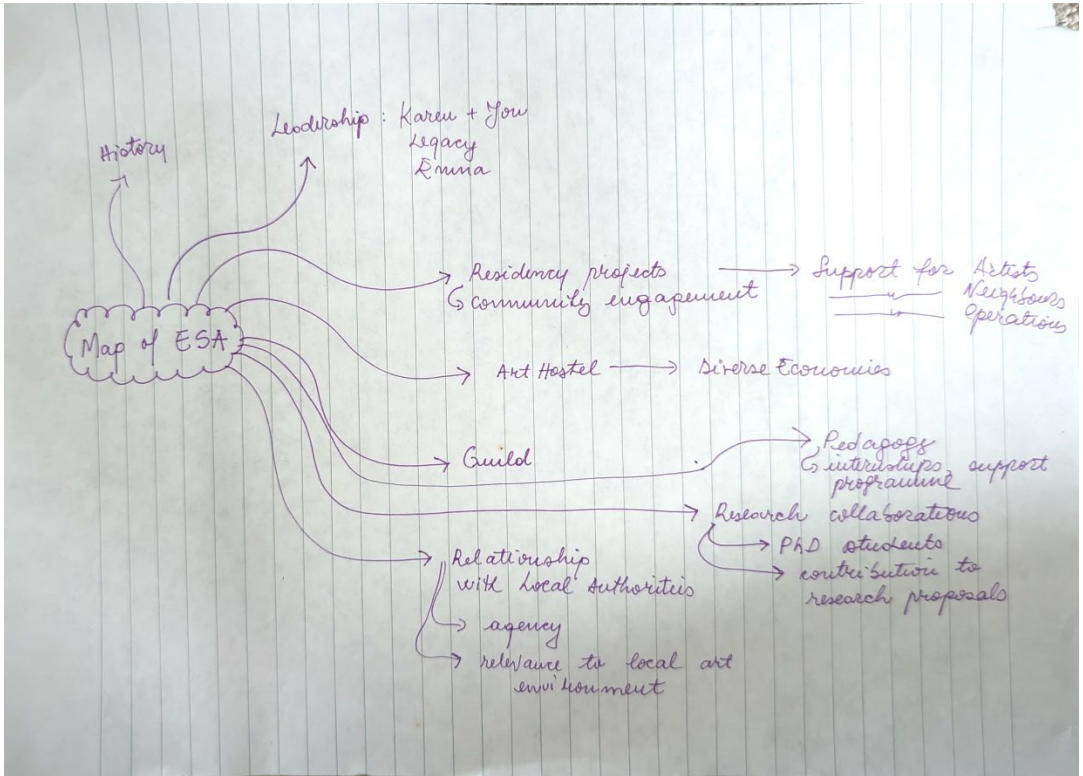 History
Leadership : Karen + Jon
Legacy
Emma
Map of ESA
Residency projects
community engagement
Support for Artists
Neighbours
Operations
Art Hostel
Diverse Economies
Guild
Pedagogy
internships, support
programme
Research collaborations
PhD students
contribution to
research proposals
Relationship
with Local Authorities
agency
relevance to local art
environment